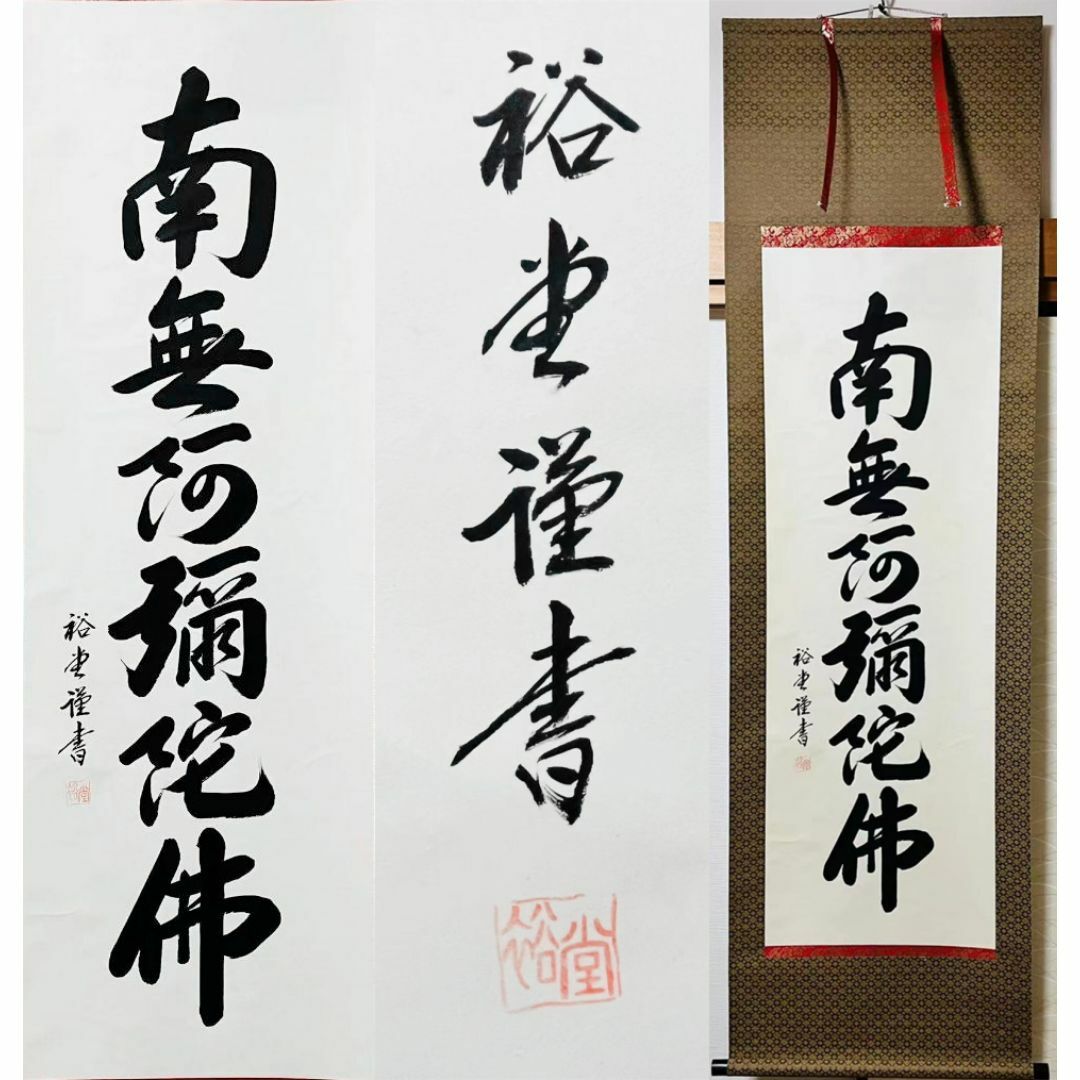 南無阿彌陀佛
裕堂謹書
裕堂
裕堂謹書
裕堂
南無阿彌陀佛
裕堂謹書
裕堂